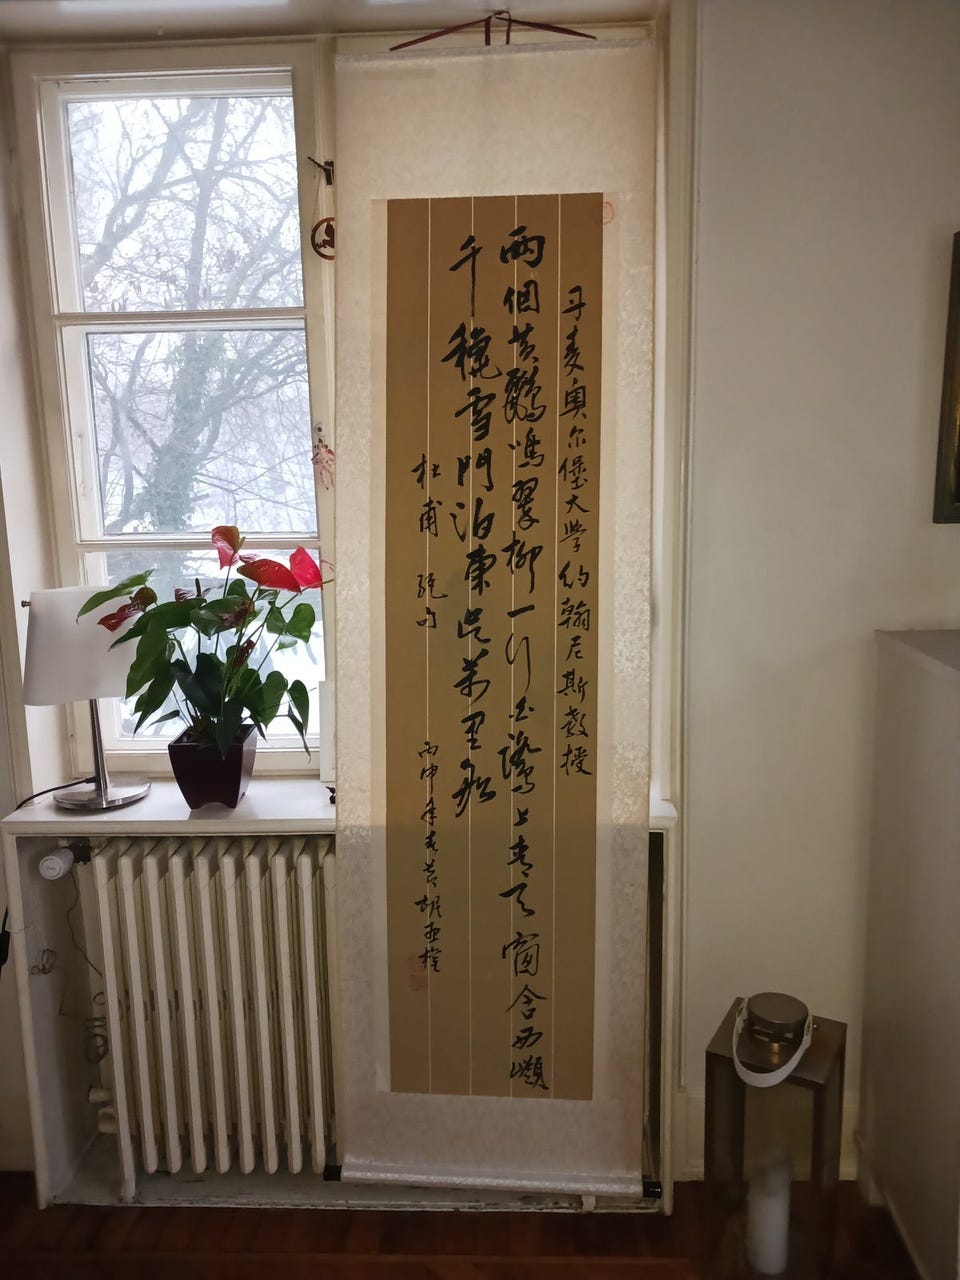 丹麦奥尔堡大学约翰尼斯教授
兩個黄鸝鳴翠柳一行白鷺上青天窗含西嶺
千穐雪門泊東吴萬里船
杜甫 绝句 丙申年春 胡亜權